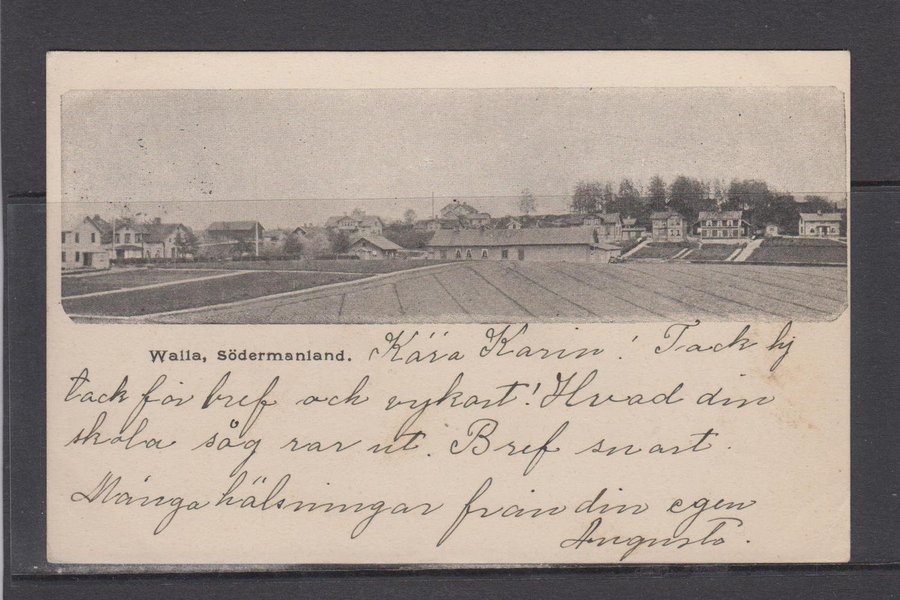 Walla, Södermanland. Kära Karin! Tack hj
tack för bref och vykort! Hvad din
skola såg rar ut. Bref snart.
Många hälsningar från din egen
Augusta.